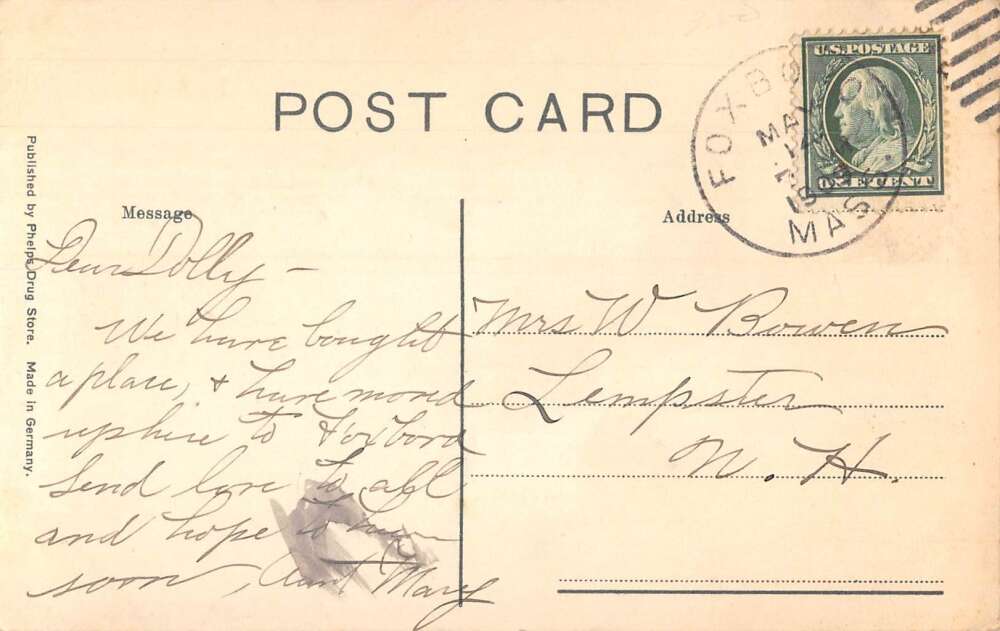 POST CARD
U.S. POSTAGE
ONE CENT
FOXBORO
MAY
MASS.
Published by Phelps Drug Store. Made in Germany.
Message
Address
Dear Dolly —
We have bought
a place, & have moved
up here to Foxboro
Send love to all
and hope to hear
soon, Aunt Mary
Mrs W Bowen
Lempster
N. H.